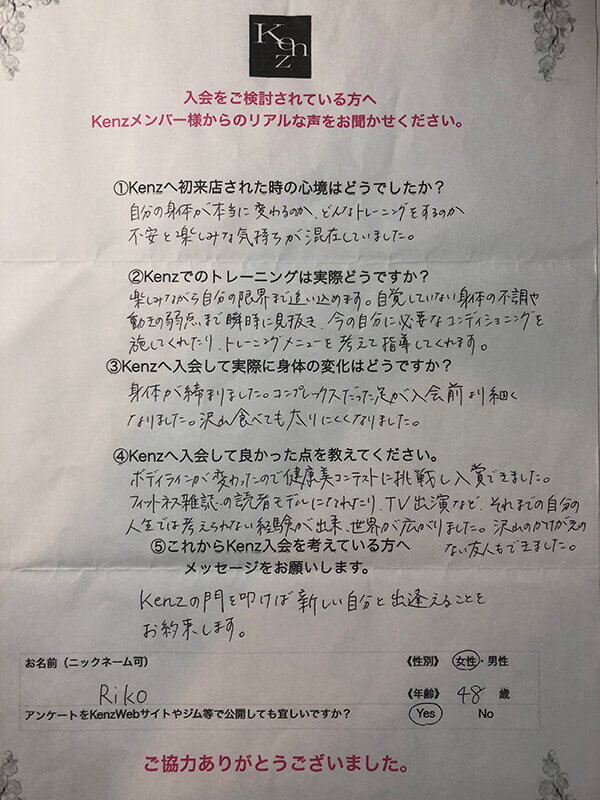 Kenz
入会をご検討されている方へ
Kenzメンバー様からのリアルな声をお聞かせください。
①Kenzへ初来店された時の心境はどうでしたか？
自分の身体が本当に変わるのか、どんなトレーニングをするのか
不安と楽しみな気持ちが混在していました。
②Kenzでのトレーニングは実際どうですか？
楽しみながら自分の限界まで追い込めます。自覚していない身体の不調や
動きの弱点まで瞬時に見抜き、今の自分に必要なコンディショニングを
施してくれたり、トレーニングメニューを考えて指導してくれます。
③Kenzへ入会して実際に身体の変化はどうですか？
身体が締まりました。コンプレックスだった足が入会前より細く
なりました。沢山食べても太りにくくなりました。
④Kenzへ入会して良かった点を教えてください。
ボディラインが変わったので健康美コンテストに挑戦し入賞できました。
フィットネス雑誌の読者モデルになれたり、TV出演など、それまでの自分の
人生では考えられない経験が出来、世界が広がりました。沢山のかけがえの
ない友人もできました。
⑤これからKenz入会を考えている方へ
メッセージをお願いします。
Kenzの門を叩けば新しい自分と出逢えることを
お約束します。
お名前（ニックネーム可）
《性別》 女性・男性
Riko
《年齢》 48 歳
アンケートをKenzWebサイトやジム等で公開しても宜しいですか？ Yes No
ご協力ありがとうございました。